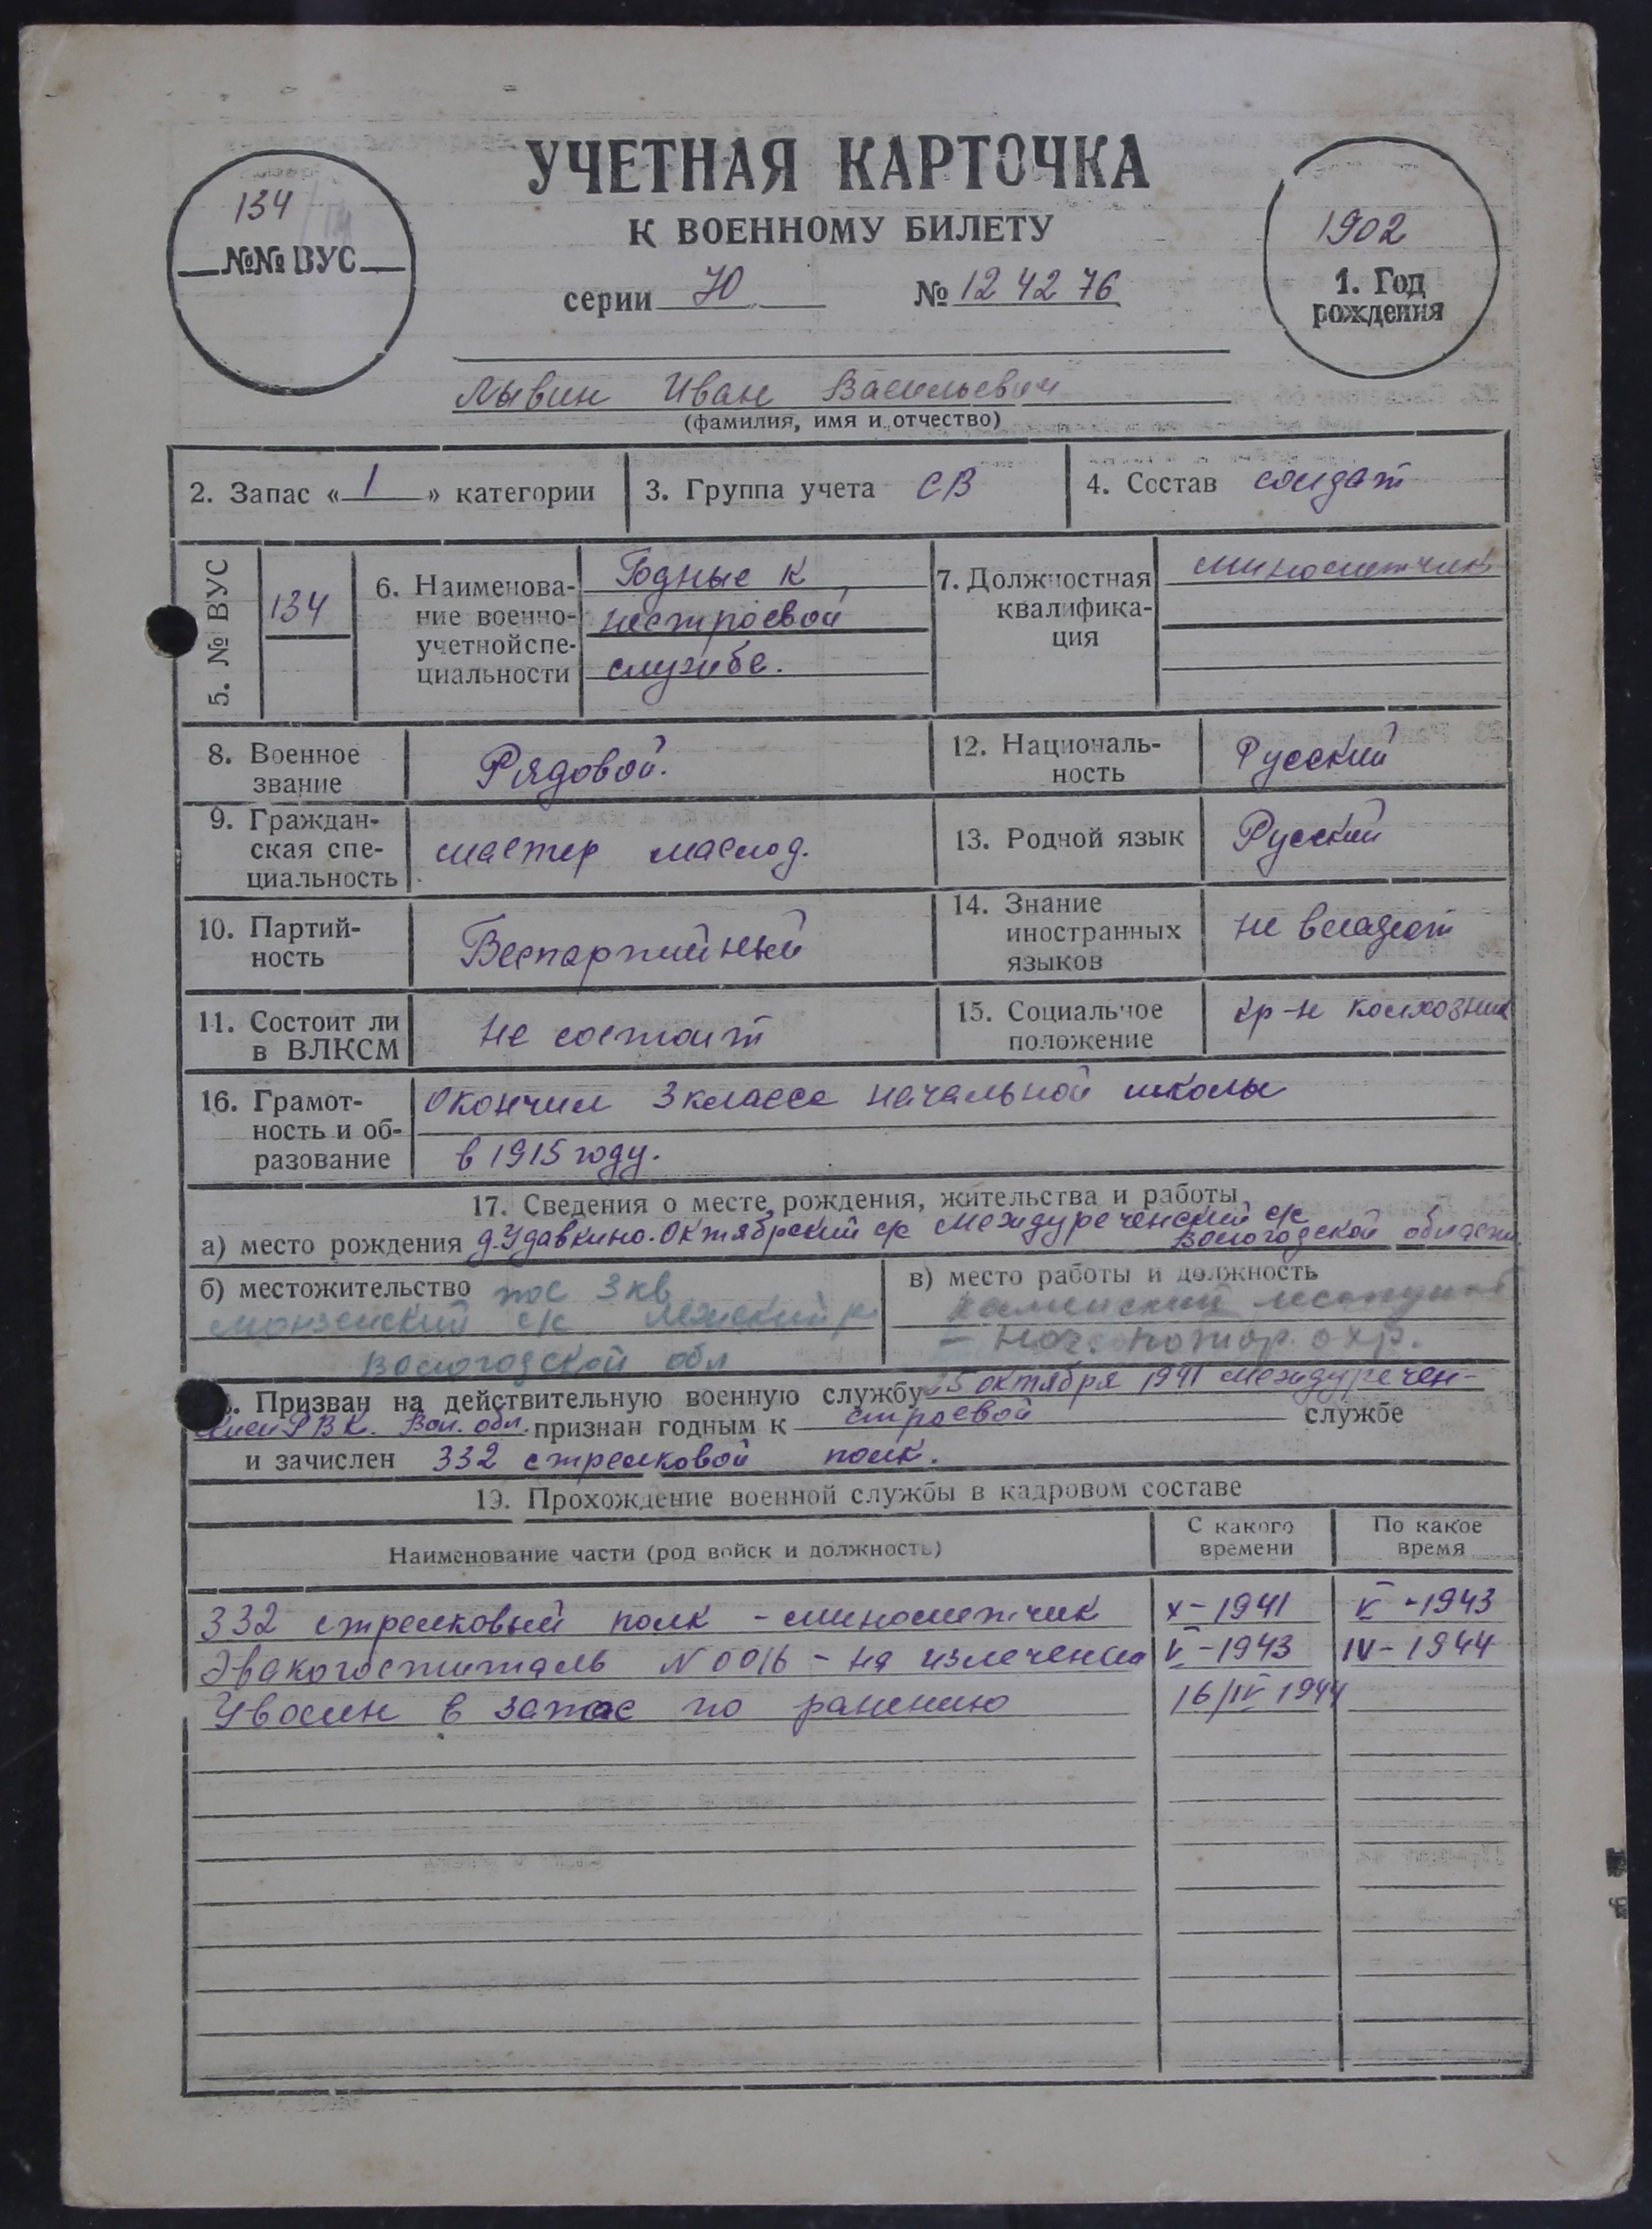 УЧЕТНАЯ КАРТОЧКА
К ВОЕННОМУ БИЛЕТУ
134
№№ ВУС
1902
1. Год
рождения
серии 70 № 12 42 76
Лывин Иван Васильевич
(фамилия, имя и отчество)
2. Запас « 1 » категории
3. Группа учета СВ
4. Состав солдат
5. № ВУС
134
6. Наименова-
ние военно-
учетной спе-
циальности
Годные к
нестроевой
службе.
7. Должностная
квалифика-
ция
минометчик
8. Военное
звание
Рядовой.
12. Националь-
ность
Русский
9. Граждан-
ская спе-
циальность
мастер маслод.
13. Родной язык
Русский
10. Партий-
ность
Беспартийный
14. Знание
иностранных
языков
не владеет
11. Состоит ли
в ВЛКСМ
не состоит
15. Социальное
положение
кр-н колхозник
16. Грамот-
ность и об-
разование
Окончил 3 класса начальной школы
в 1915 году.
17. Сведения о месте рождения, жительства и работы
а) место рождения д. Удавкино. Октябрский с/с Междуреченский с/с
Вологодской области
б) местожительство пос 3 кв
Монзенский с/с Лежский р.
Вологодской обл
в) место работы и должность
Каменский лесопункт
- нач. пожар. охр.
. Призван на действительную военную службу 25 октября 1941 Междуречен-
ским РВК. Вол. обл. признан годным к строевой службе
и зачислен 332 стрелковой полк.
19. Прохождение военной службы в кадровом составе
Наименование части (род войск и должность)
С какого
времени
По какое
время
332 стрелковый полк - минометчик X-1941 V-1943
Эвакогоспиталь N 0016 - на излечении V-1943 IV-1944
Уволен в запас по ранению 16/IV 1944